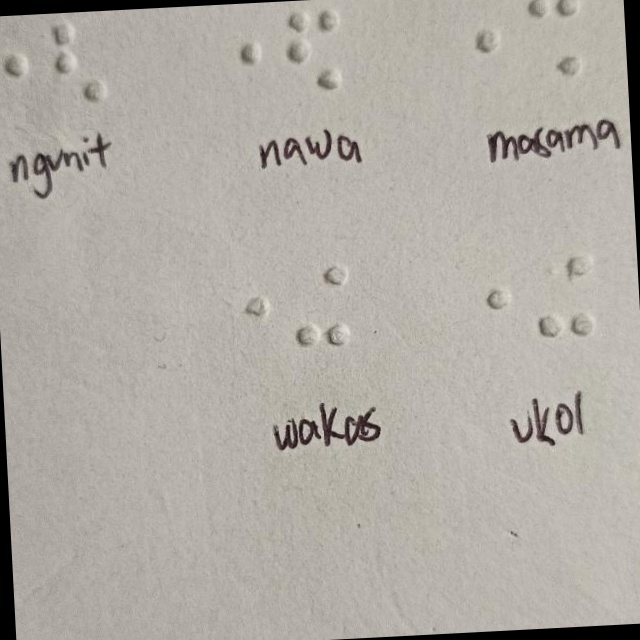 ngunit nawa masama
wakas ukol